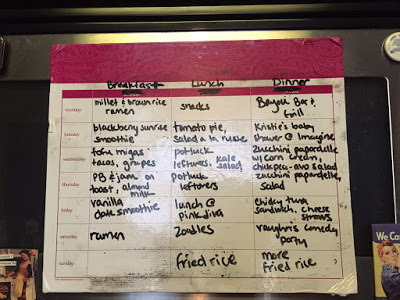 Breakfast Lunch Dinner
monday
millet & brown rice
ramen
snacks
Bayou Bar &
Grill
tuesday
blackberry sunrise
smoothie
tomato pie,
salad a la russe
Kristie's baby
shower @ Imagine
wednesday
tofu migas
tacos, grapes
potluck
leftovers, kale
salad
zucchini papardelle
w/ corn cream,
chickpea-avo salad
thursday
PB & jam on
toast, almond
milk
potluck
leftovers
zucchini papardelle,
salad
friday
vanilla
date smoothie
lunch @
pink dinl
sandwich, cheese
straws
saturday
ramen
zoodles
vaughn's comedy
party
sunday
fried rice
more
fried rice
We C